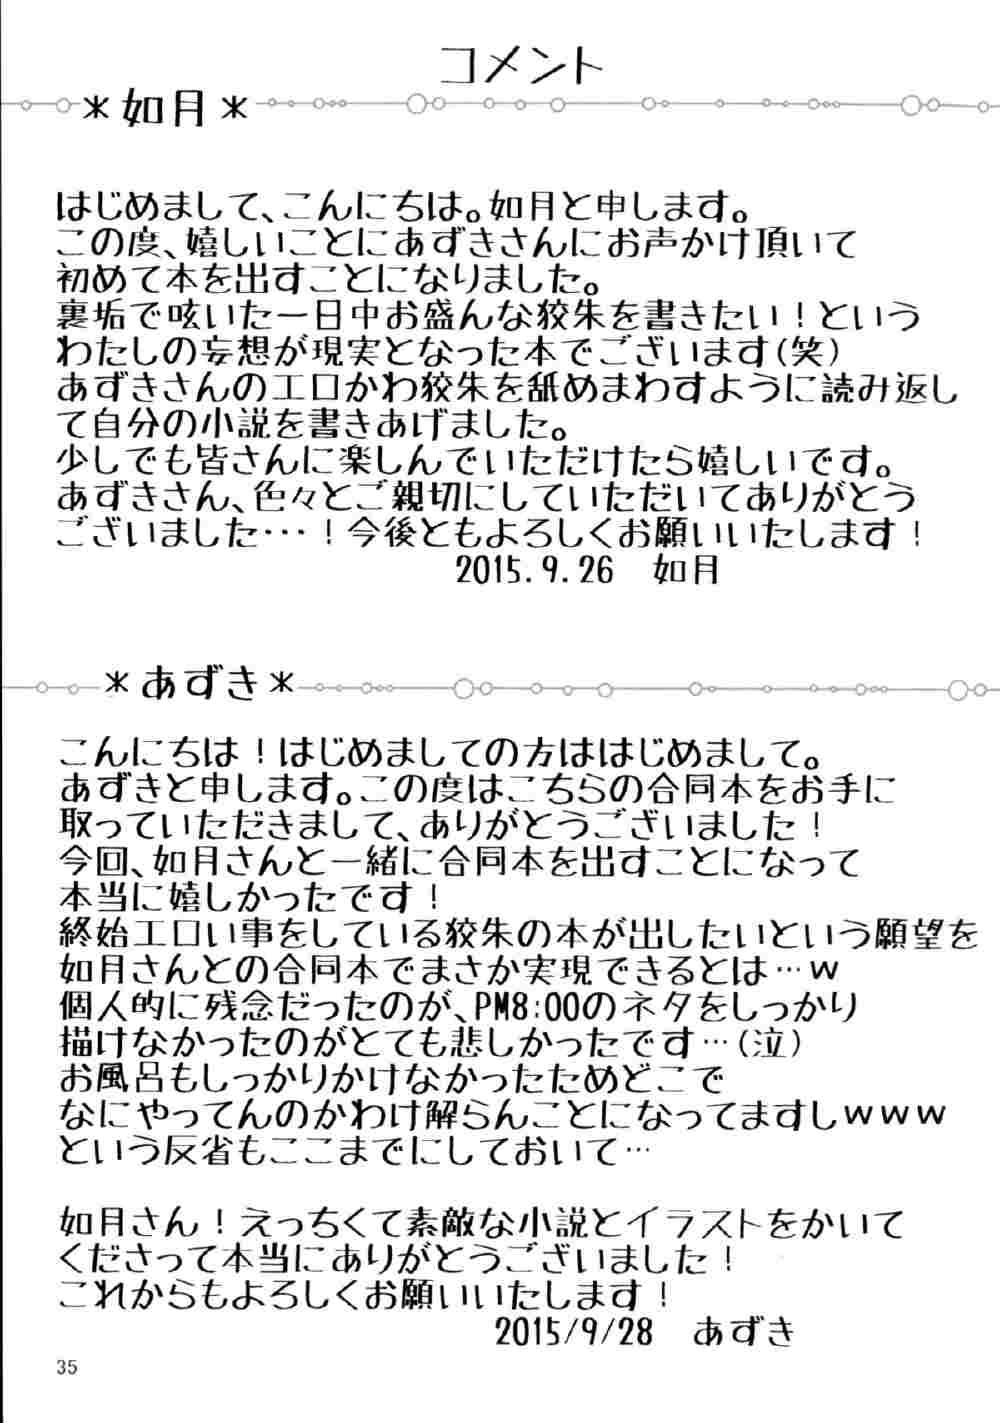 コメント
＊如月＊
はじめまして、こんにちは。如月と申します。
この度、嬉しいことにあずきさんにお声かけ頂いて
初めて本を出すことになりました。
裏垢で呟いた一日中お盛んな狡朱を書きたい！という
わたしの妄想が現実となった本でございます(笑)
あずきさんのエロかわ狡朱を舐めまわすように読み返し
て自分の小説を書きあげました。
少しでも皆さんに楽しんでいただけたら嬉しいです。
あずきさん、色々とご親切にしていただいてありがとう
ございました…！今後ともよろしくお願いいたします！
2015.9.26　如月
＊あずき＊
こんにちは！はじめましての方ははじめまして。
あずきと申します。この度はこちらの合同本をお手に
取っていただきまして、ありがとうございました！
今回、如月さんと一緒に合同本を出すことになって
本当に嬉しかったです！
終始エロい事をしている狡朱の本が出したいという願望を
如月さんとの合同本でまさか実現できるとは…ｗ
個人的に残念だったのが、PM8:00のネタをしっかり
描けなかったのがとても悲しかったです…(泣)
お風呂もしっかりかけなかったためどこで
なにやってんのかわけ解らんことになってますしｗｗｗ
という反省もここまでにしておいて…
如月さん！えっちくて素敵な小説とイラストをかいて
くださって本当にありがとうございました！
これからもよろしくお願いいたします！
2015/9/28　あずき
35